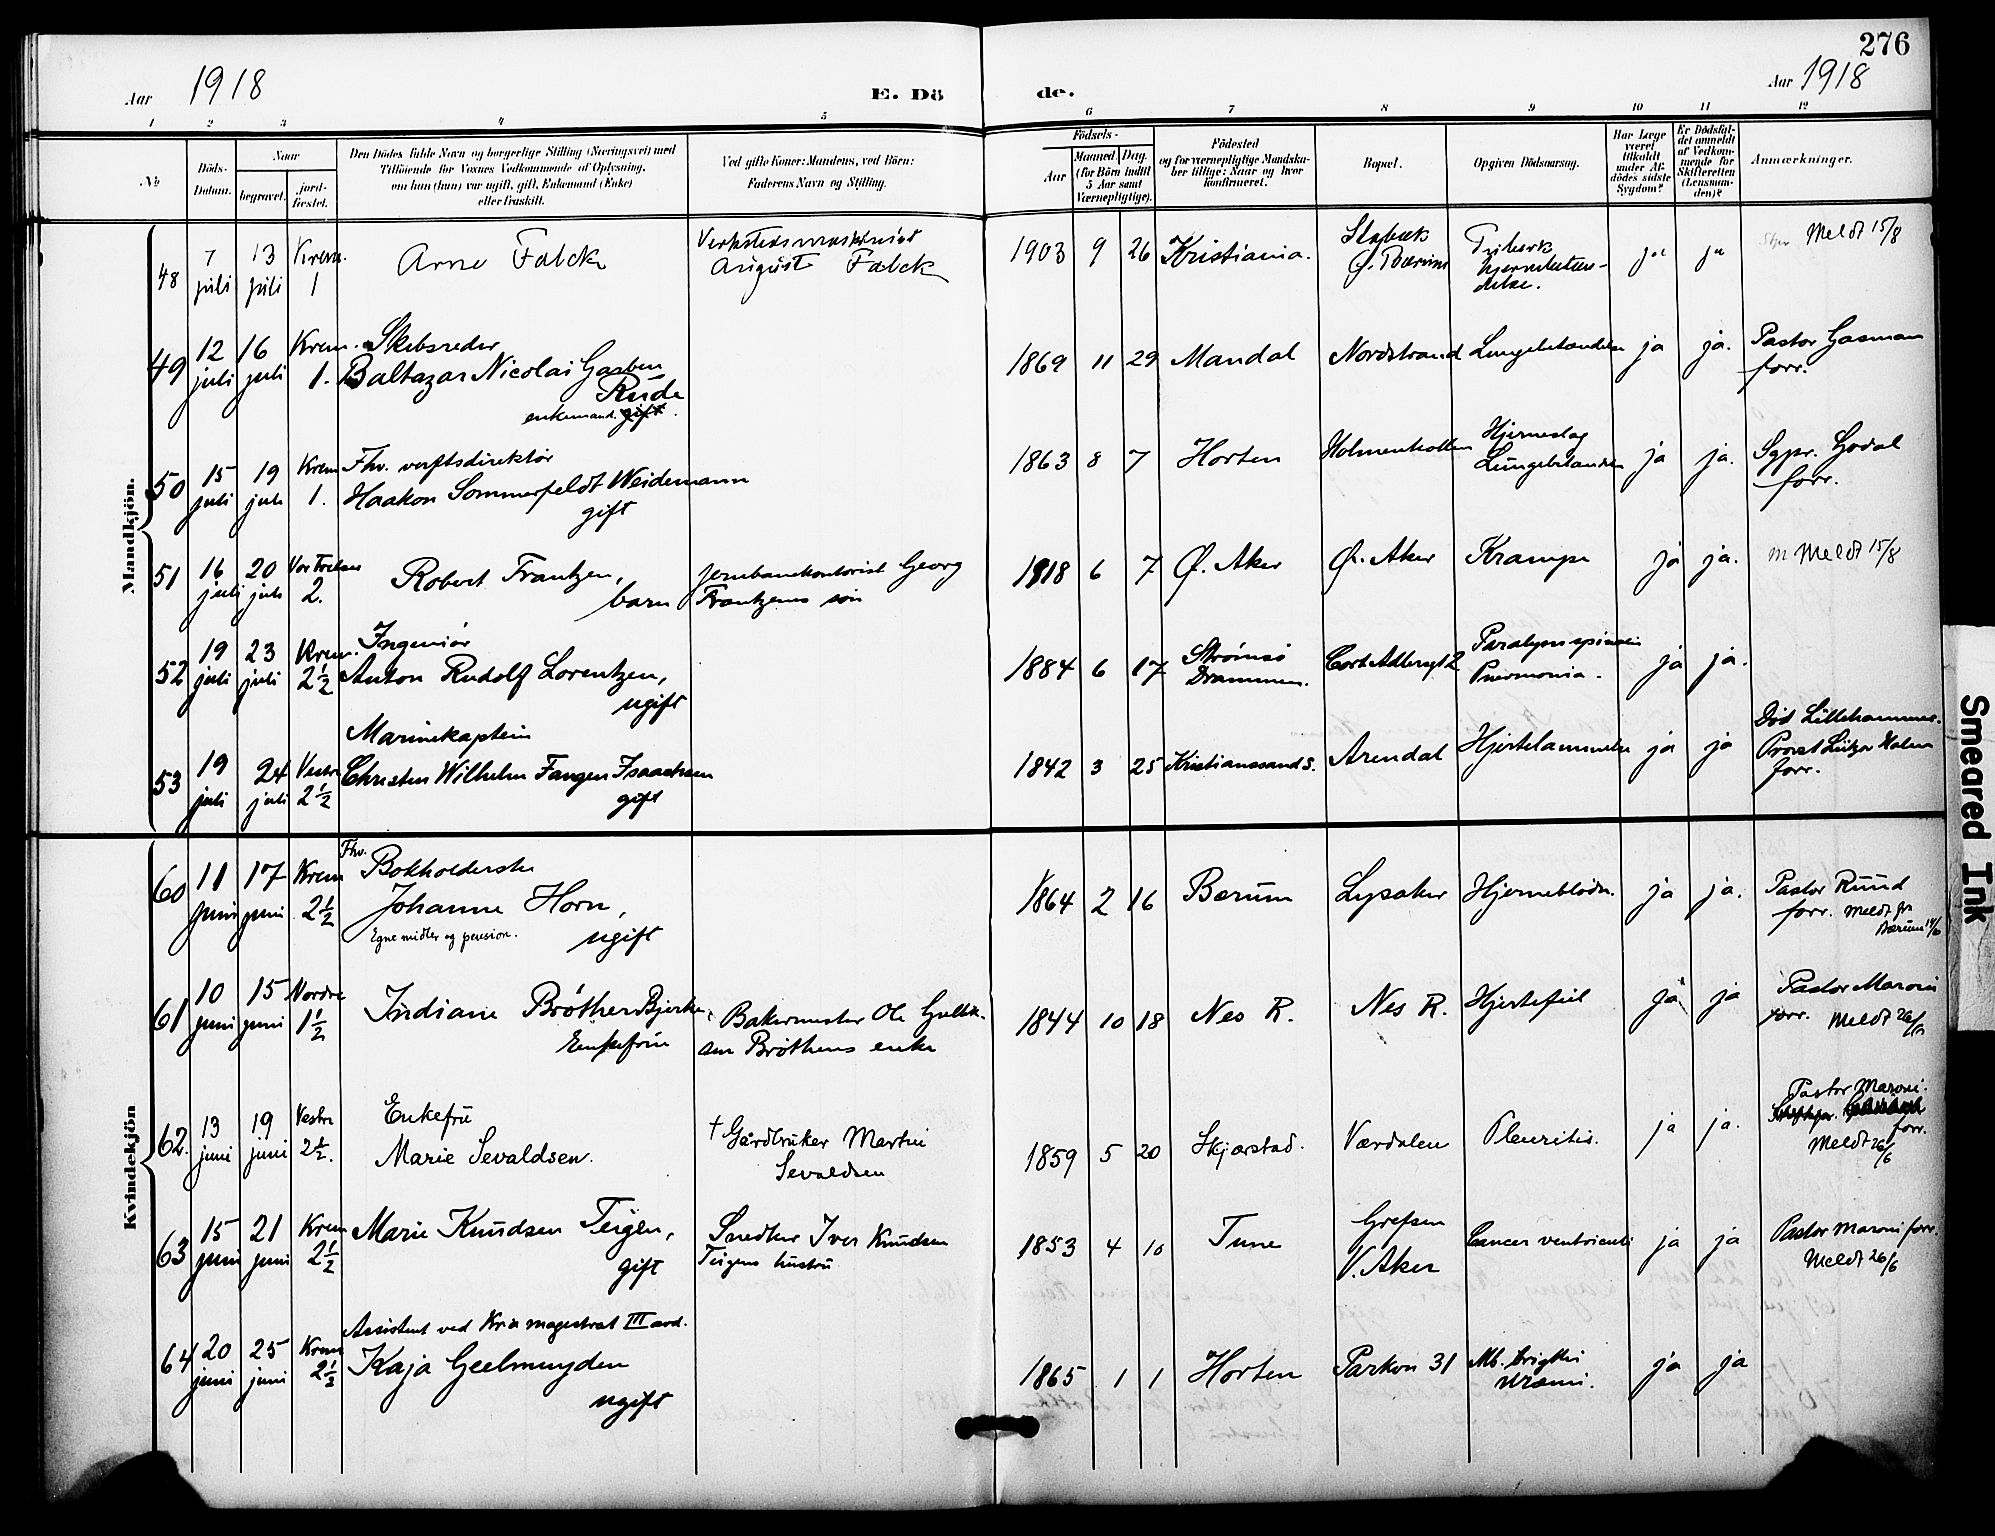 276
Aar 1918 E. Dö de. Aar 1918
1 2 3 4 5 6 7 8 9 10 11 12
No
Döds-
Datum.
Naar
begravet.
jord-
fæstet.
Den Dödes fulde Navn og borgerlige Stilling (Næringsvei) med
Tilföiende for Voxnes Vedkommende af Oplysning,
om han (hun) var ugift, gift, Enkemand (Enke)
eller fraskilt.
Ved gifte Koner: Mandens, ved Börn:
Faderens Navn og Stilling.
Födsels-
Aar
Maaned. Dag.
(for Börn indtil
5 Aar samt
Værnepligtige).
Födested
og for værnepligtige Mandska-
ber tillige: Naar og hvor
konfirmeret.
Bopæl.
Opgiven Dödsaarsag.
Har Læge
været
tilkaldt
under Af-
dödes sidste
Sygdom?
Er Dödsfal-
det anmeldt
af Vedkom-
mende for
Skifteretten
(Lensman-
den)?
Anmærkninger.
Mandkjön.
48 7 juli 13 juli Krem. 1
Arne Falck
Verkstedsmaskinist
August Falck
1903 9 26 Kristiania.
Stabæk
Ø. Bærum
Tuberk
hjernebetæn-
delse.
ja ja
Meldt 15/8
49 12 juli 16 juli Krem. 1.
Skibsreder
Baltazar Nicolai Garben
Rude
enkemand. gift.
1869 11 29 Mandal Nordstrand Lungebetændelse ja ja.
Pastor Gasman
forr.
50 15 juli 19 juli Krem 1.
Fhv. verftsdirektør
Haakon Sommerfeldt Weidemann
gift
1863 8 7 Horten Holmenkollen
Hjerneslag
Lungebetændelse
ja ja.
Sgpr. Godal
forr.
51 16 juli 20 juli Vor Frelser 2.
Robert Frantzen,
barn
Jernbanekontorist Georg
Frantzens søn
1918 6 7 Ø. Aker Ø. Aker Krampe ja ja.
m Meldt 15/8
52 19 juli 23 juli Krem. 2½
Ingeniør
Anton Rudolf Lorentzen,
ugift
1884 6 17
Strømsø
Drammen.
Cort Adlersgt 2
Paralysis spinalis
Pneumonia.
ja ja.
53 19 juli 24 juli Vestre 2½
Marinekaptein
Christen Wilhelm Fangen Isaachsen
gift
1842 3 25 Kristianssand S. Arendal Hjertelammelse ja ja
Død Lillehammer.
Provst Lützow Holm
forr.
Kvindekjön
60 11 juni 17 juni Krem 2½
Fhv. Bokholderske
Johanne Horn,
Egne midler og pension.
ugift
1864 2 16 Bærum Lysaker Hjerneblødn. ja ja.
Pastor Ruud
forr. Meldt fr
Bærum
61 10 juni 15 juni Nordre 1½
Indiane Brøthen Bjerke,
Enkefrue
Bakermester Ole Gulbk-
sen Brøthens enke
1844 10 18 Nes R. Nes R. Hjertefeil ja ja
Pastor Maroni
forr. Meldt 26/6
62. 13 juni 19 juni Vestre 2½.
Enkefru
Marie Sevaldsen.
† Gårdbruker Martin
Sevaldsen
1859 5 20 Skjerstad. Værdalen Pleuritis. ja ja.
Pastor Maroni.
forr.
Meldt 26/6
63 15 juni 21 juni Krem 2½
Marie Knudsen Teigen,
gift
Snedker Iver Knudsen
Teigens hustru
1853 4 10 Tune
Grefsen
V. Aker
Cancer ventriculi ja ja
Pastor Maroni forr.
Meldt 26/6
64 20 juni 25 juni Krem 2½
Assistent ved Kr.a magistrat III avd.
Kaja Geelmuyden
ugift
1865 1 1 Horten Parkvn 31
Mb. brightii
Uræmi.
ja ja
Smeared Ink